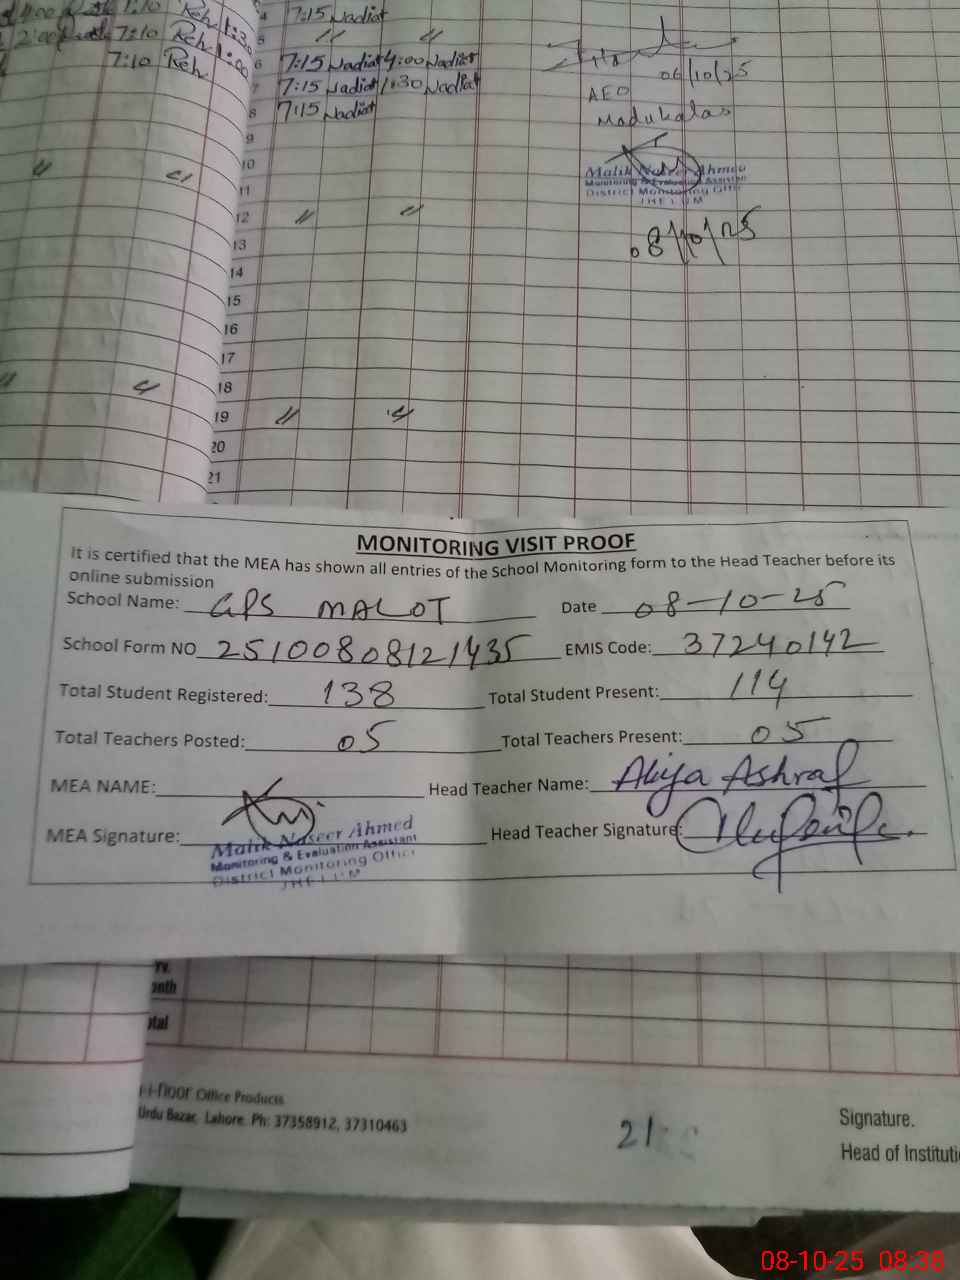 4:00 1:10 Reh 1:30
2:00 7:10 Reh 1:00
7:10 Reh
4 7:15 Nadiat
5 〃 〃
6 7:15 Nadiat 4:00 Nadiat
7 7:15 Nadiat 1:30 Nadiat
8 7:15 Nadiat
9
10
11
12 〃 〃
13
14
15
16
17
18
19 〃 〃
20
21
06/10/25
AEO
Madukalas
Malik Naseer Ahmed
Monitoring & Evaluation Assistan
District Monitoring Offic
JHELUM
08/10/25
MONITORING VISIT PROOF
It is certified that the MEA has shown all entries of the School Monitoring form to the Head Teacher before its
online submission
School Name: GPS MALOT Date 08-10-25
School Form NO 25100808121435 EMIS Code: 37240142
Total Student Registered: 138 Total Student Present: 114
Total Teachers Posted: 05 Total Teachers Present: 05
MEA NAME: Head Teacher Name: Aliya Ashraf
MEA Signature: Head Teacher Signature:
Malik Naseer Ahmed
Monitoring & Evaluation Assistant
District Monitoring Office
JHELUM
onth
otal
i-floor Office Products
Urdu Bazar, Lahore. Ph: 37358912, 37310463
21
Signature.
Head of Instituti
08-10-25 08:38